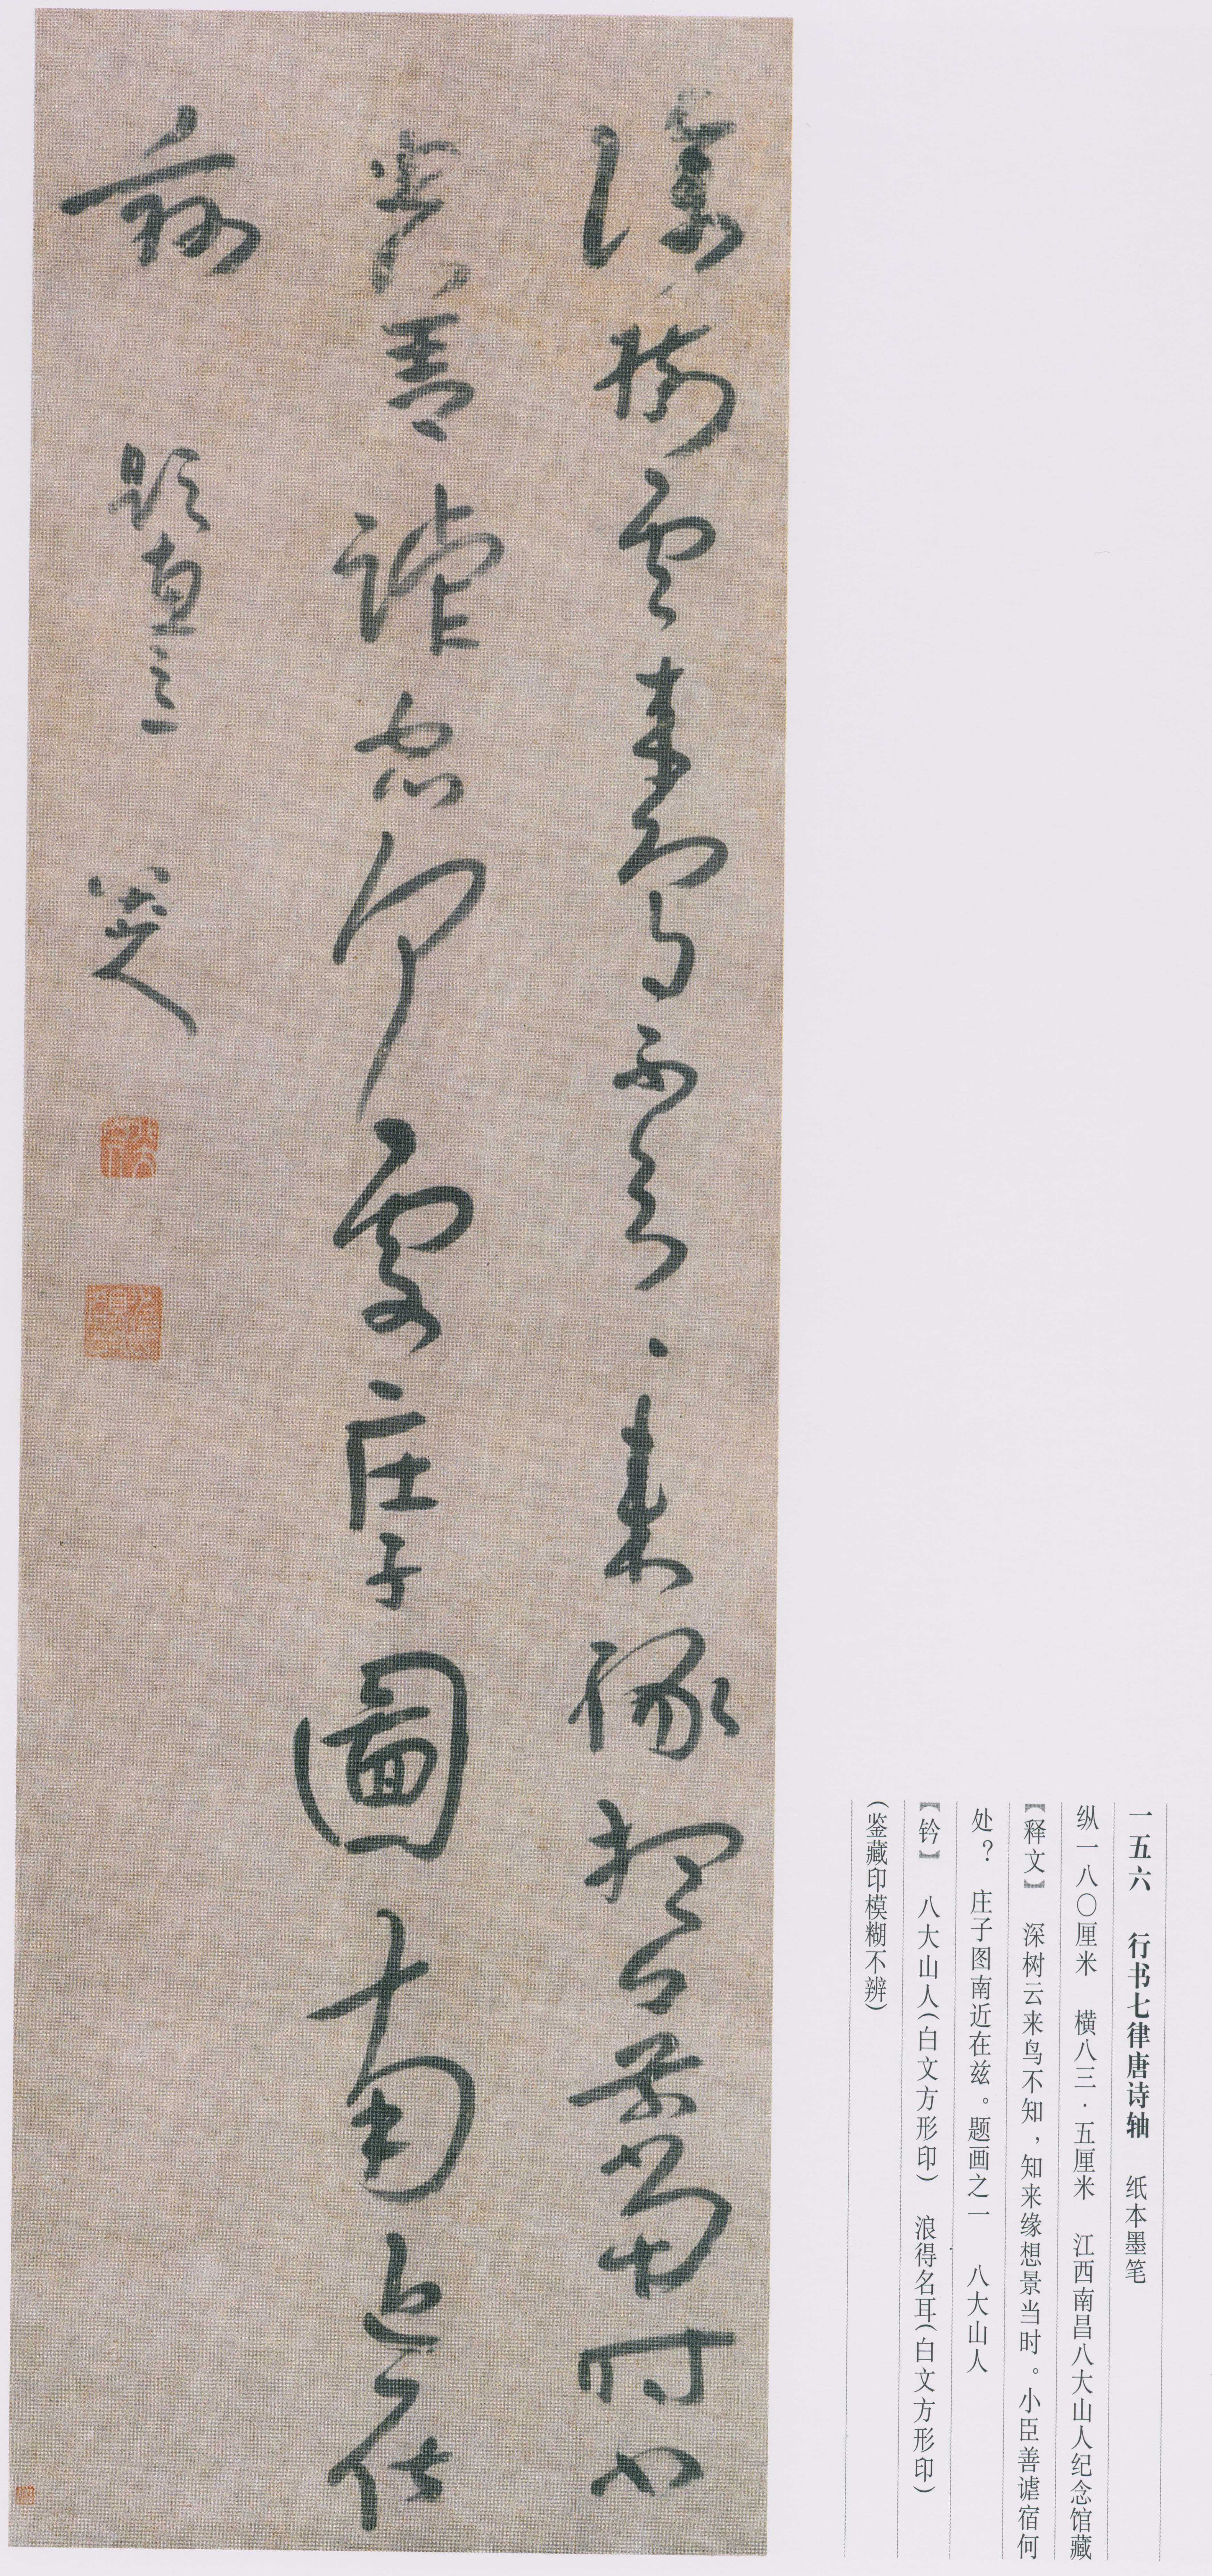 一五六 行书七律唐诗轴 纸本墨笔
纵一八〇厘米 横八三·五厘米 江西南昌八大山人纪念馆藏
【释文】 深树云来鸟不知，知来缘想景当时。小臣善谑宿何
处？ 庄子图南近在兹。题画之一 八大山人
【钤】 八大山人（白文方形印） 浪得名耳（白文方形印）
（鉴藏印模糊不辨）
深樹雲來鳥不知、來緣想景當時小
臣善謔宿何處庄子圖南近在
茲 題畫之一 八大山人
八大山人